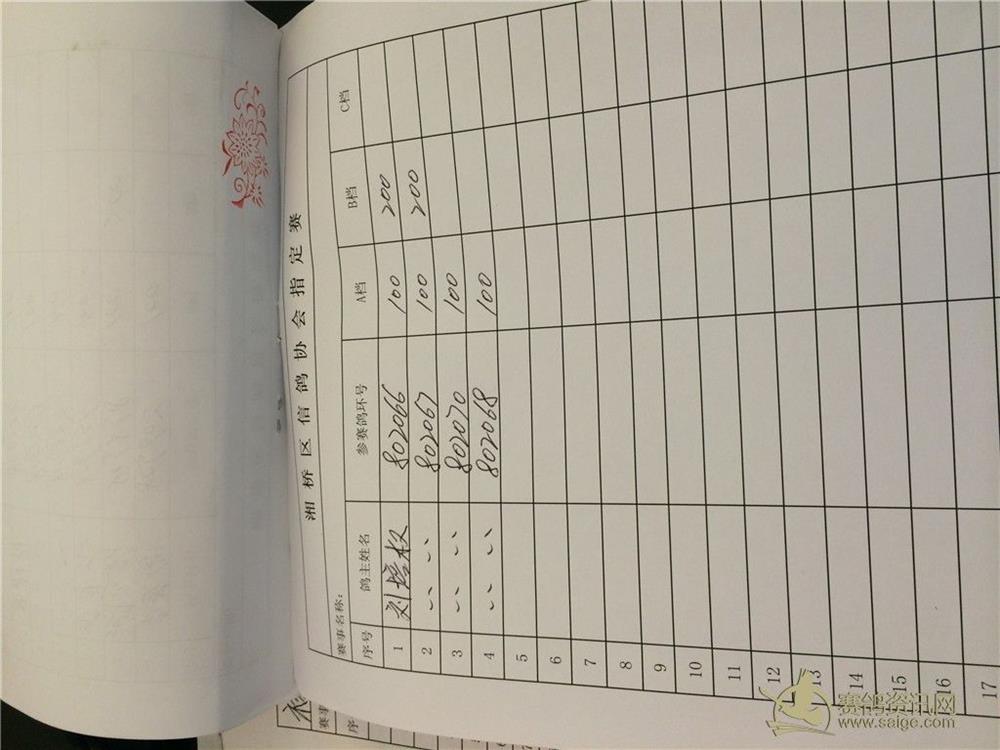 湘桥区信鸽协会指定赛
赛事名称：
序号 鸽主姓名 参赛鸽环号 A档 B档 C档
1 刘培权 802066 100 200
2 〃 〃 802067 100 200
3 〃 〃 802070 100
4 〃 〃 802068 100
5
6
7
8
9
10
11
12
13
14
15
16
17
赛鸽资讯网
www.saige.com